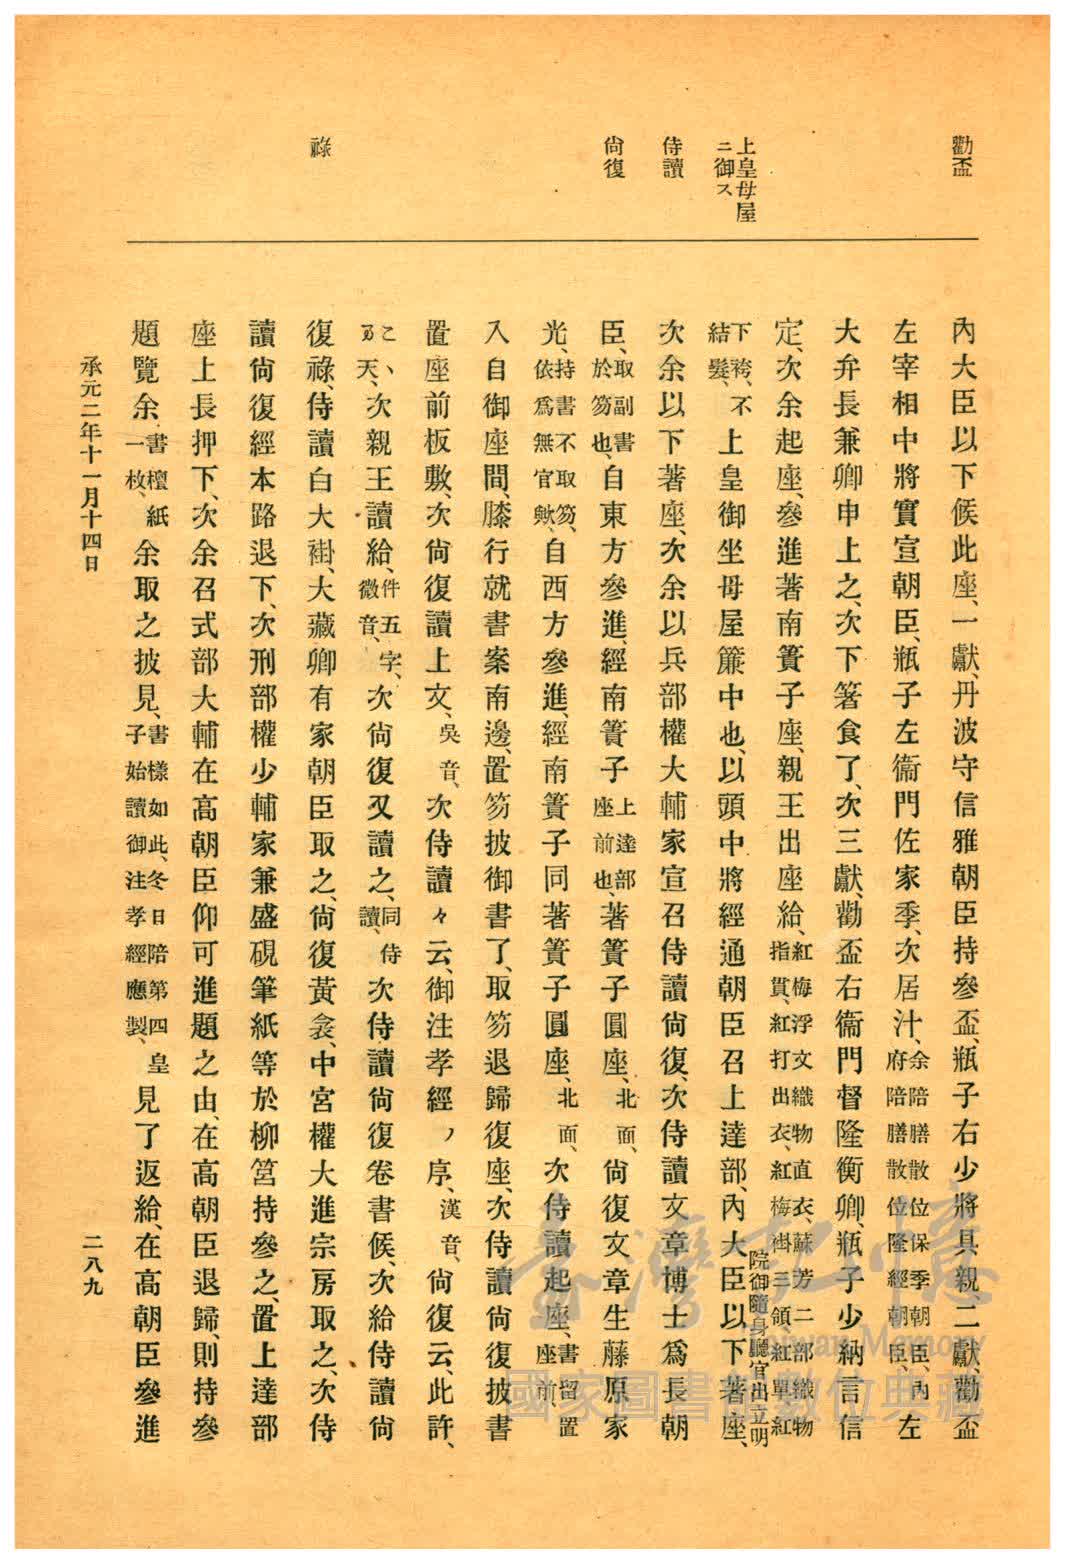 勸盃
上皇母屋
ニ御ス
侍讀
尙復
祿
內大臣以下候此座、一獻、丹波守信雅朝臣持參盃、瓶子右少將具親、二獻、勸盃
左宰相中將實宣朝臣、瓶子左衞門佐家季、次居汁、余陪膳散位保季朝臣、內府陪膳散位隆經朝臣、左
大弁長兼卿申上之、次下箸食了、次三獻、勸盃右衞門督隆衡卿、瓶子少納言信
定、次余起座、參進著南簀子座、親王出座給、紅梅浮文織物直衣、蘇芳二部織物指貫、紅打出衣、紅梅褂三領、紅單、紅
下袴、不結髮、上皇御坐母屋簾中也、以頭中將經通朝臣召上達部、內大臣以下著座、院御隨身廳官出立明
次余以下著座、次余以兵部權大輔家宣召侍讀尙復、次侍讀文章博士爲長朝
臣、取副書於笏也、自東方參進、經南簀子上達部座前也、著簀子圓座、北面、尙復文章生藤原家
光、持書不取笏、依爲無官歟、自西方參進、經南簀子同著簀子圓座、北面、次侍讀起座、書留置座前、
入自御座間、膝行就書案南邊、置笏披御書了、取笏退歸復座、次侍讀尙復披書
置座前板敷、次尙復讀上文、吳音、次侍讀々云、御注孝經ノ序、漢音、尙復云、此許、
乙、天、次親王讀給、件五字、微音、次尙復又讀之、同侍讀、次侍讀尙復卷書候、次給侍讀尙
復祿、侍讀白大褂、大藏卿有家朝臣取之、尙復黃衾、中宮權大進宗房取之、次侍
讀尙復經本路退下、次刑部權少輔家兼盛硯筆紙等於柳筥持參之、置上達部
座上長押下、次余召式部大輔在高朝臣仰可進題之由、在高朝臣退歸、則持參
題覽余、書檀紙一枚、余取之披見、書樣如此、冬日陪第四皇子始讀御注孝經應製、見了返給、在高朝臣參進
承元二年十一月十四日
二八九
臺灣記憶
Taiwan Memory
國家圖書館數位典藏